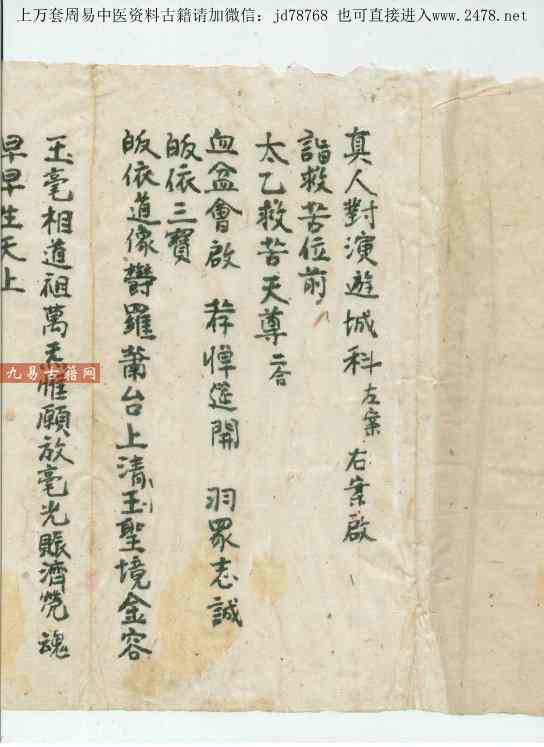 上万套周易中医资料古籍请加微信：jd78768 也可直接进入www.2478.net
真人對演遊城科 左案 右案啟
詣救苦位前
太乙救苦天尊 二合
血盆會啟 筵開 羽眾志誠
皈依三寶
皈依道像欝羅蕭台上清玉聖境金容
玉毫相道祖萬天惟願放毫光賑濟煢魂
早早生天上
九易古籍网